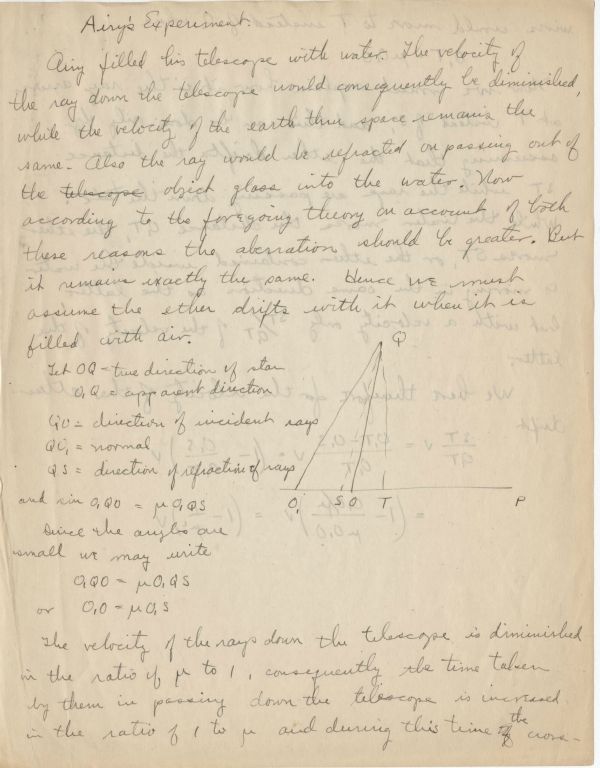 Airy's Experiment.
Airy filled his telescope with water. The velocity of
the ray down the telescope would consequently be diminished,
while the velocity of the earth thru space remains the
same. Also the ray would be refracted on passing out of
the telescope object glass into the water. Now
according to the foregoing theory on account of both
these reasons the aberration should be greater. But
it remains exactly the same. Hence we must
assume the ether drifts with it when it is
filled with air.
Let OQ = true direction of star
O,Q = apparent direction
QO = direction of incident rays
QO, = normal
QS = direction of refraction of rays
and sin O,QO = μ O,QS
Since the angles are
small we may write
O,QO = μ O,QS
or O,O = μ O,S
Q
O, S O T P
The velocity of the rays down the telescope is diminished
in the ratio of μ to 1, consequently the time taken
by them in passing down the telescope is increased
in the ratio of 1 to μ and during this time the cross-